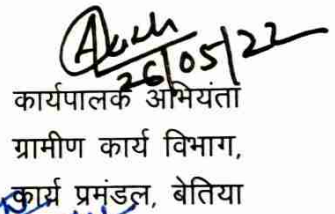 26/05/22
कार्यपालक अभियंता
ग्रामीण कार्य विभाग,
कार्य प्रमंडल, बेतिया